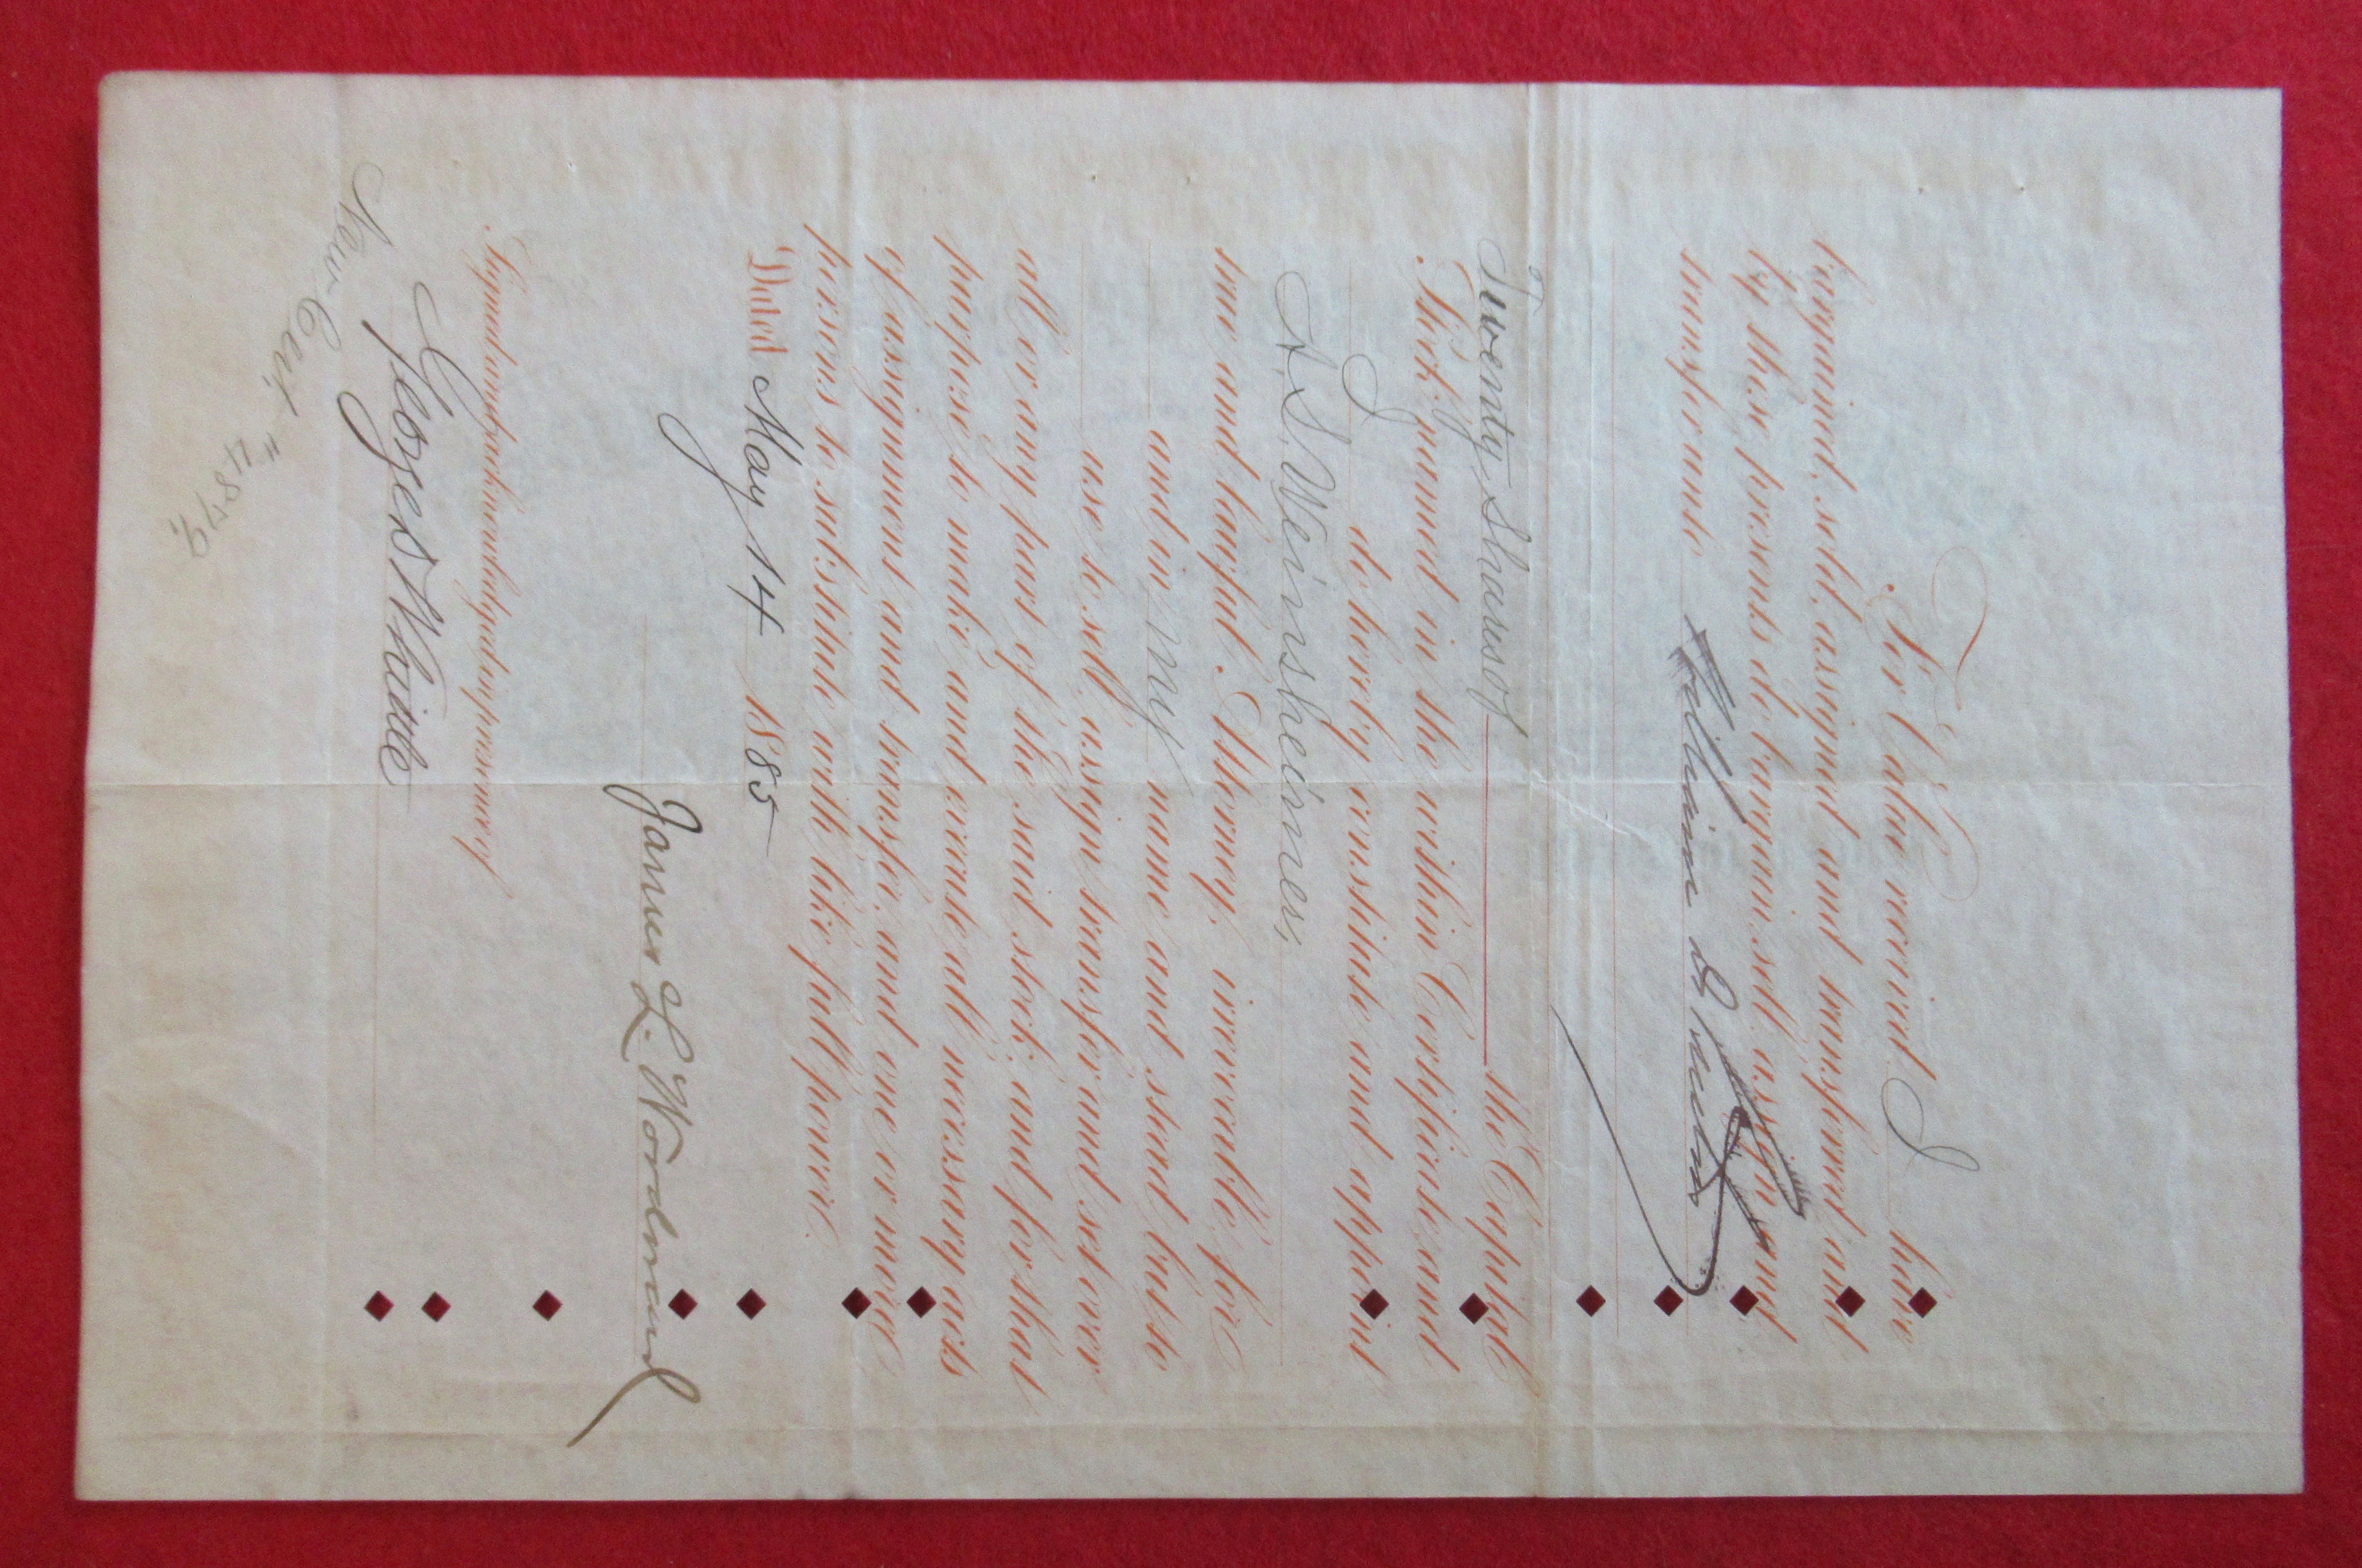 For Value received I have
bargained, sold, assigned and transferred and
by these presents do bargain, sell, assign and
transfer unto William D
Twenty Shares of the Capital
Stock named in the within Certificate, and
I do hereby constitute and appoint
A. S. Weinsheimer,
true and lawful Attorney, irrevocable, for
and in my name and stead but to
use to sell, assign, transfer and set over
all or any part of the said stock, and for that
purpose to make and execute all necessary acts
of assignment and transfer, and one or more
persons to substitute with like full power.
Dated May 14 1885
James L. Woodward
Signed and acknowledged in presence of
George S White
New Cert. "4879.